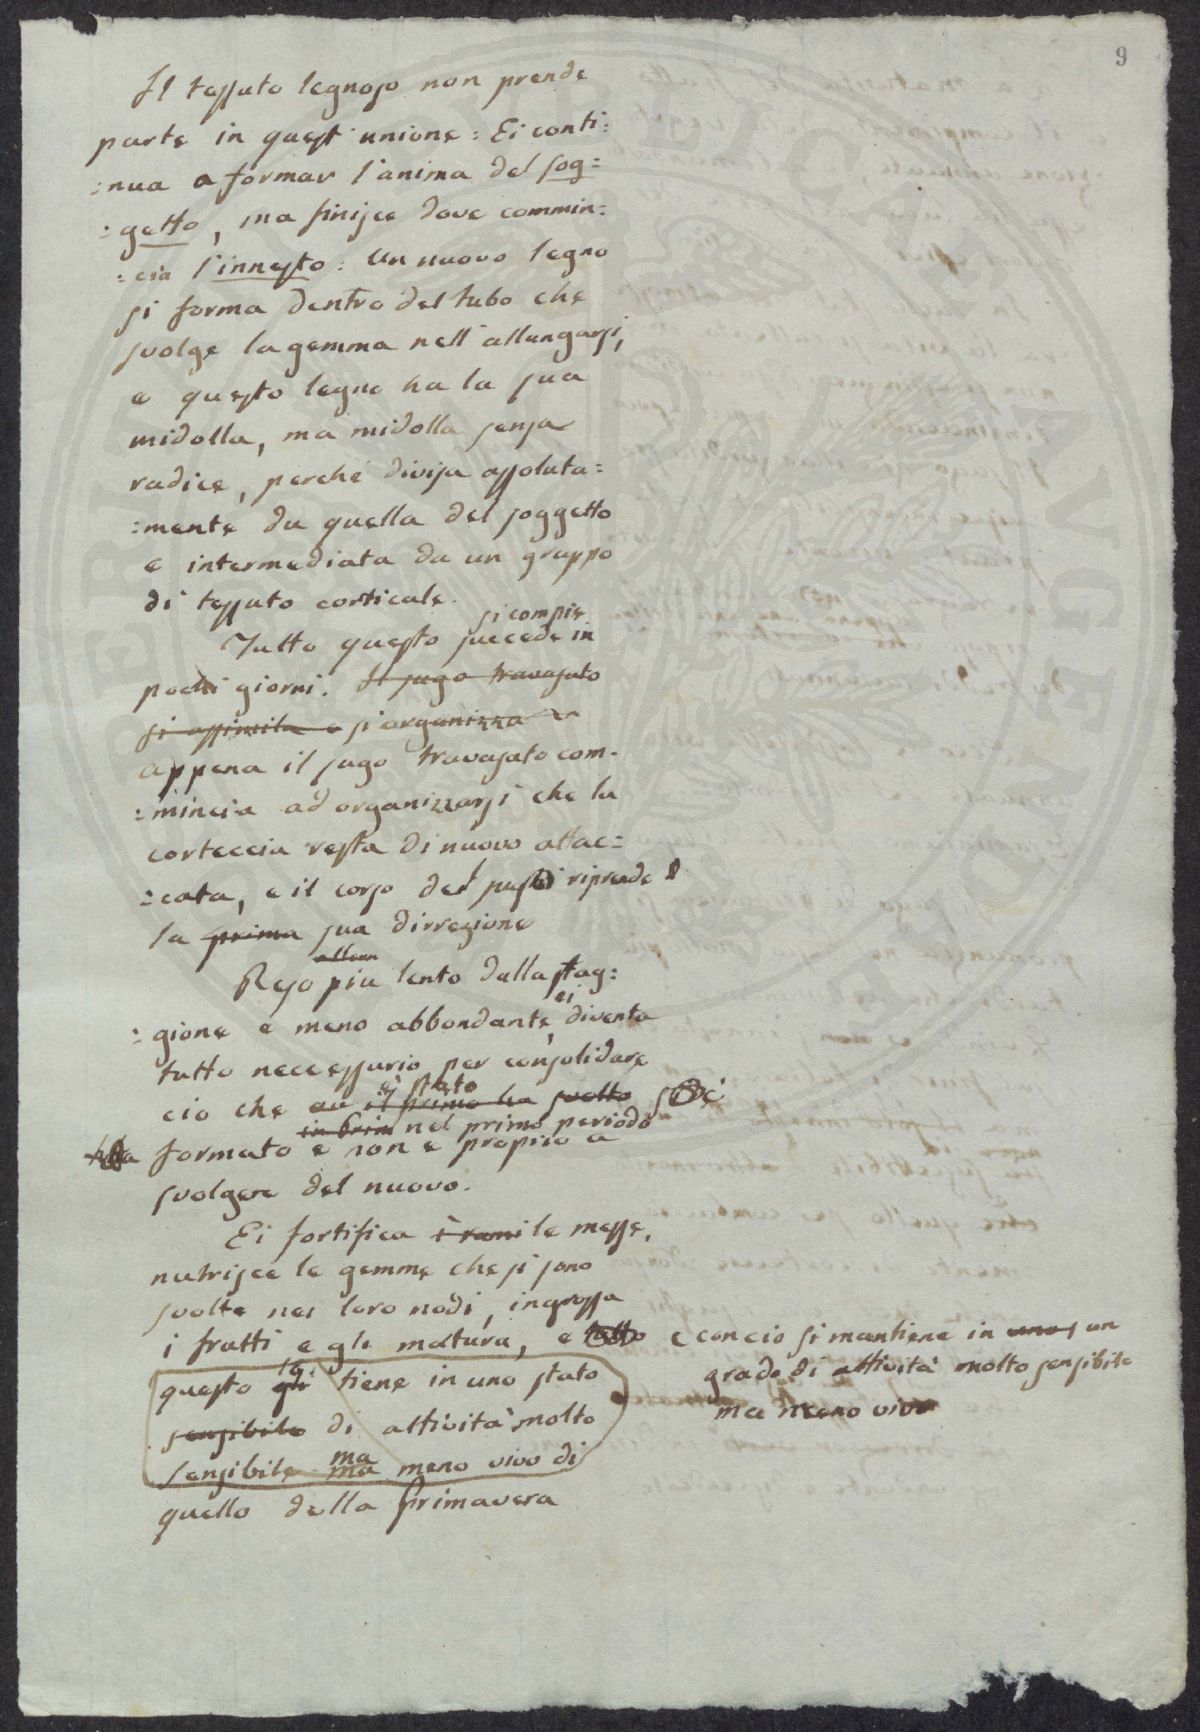 9
Il tessuto legnoso non prende
parte in quest'unione: Ei conti:
:nua a formar l'anima del sog:
:getto, ma finisce dove commin:
:cia l'innesto: Un nuovo legno
si forma dentro del tubo che
svolge la gemma nell'allungarsi,
e questo legno ha la sua
midolla, ma midolla senza
radice, perché divisa assoluta:
:mente da quella del soggetto
e intermediata da un gruppo
di tessuto corticale.
si compie
Tutto questo succede in
pochi giorni. Il sugo travasato
si assimila e si organizza
appena il sugo travasato com.
:mincia ad organizzarsi che la
corteccia resta di nuovo attac:
:cata, e il corso del riprende
la prima sua direzione
allora
Reso piu lento dalla stag:
:gione e meno abbondante, ei diventa
tutto neccessario per consolidare
è stato
cio che il primo ha svolto
in prim nel primo periodo
formato e non è proprio a
svolgere del nuovo.
Ei fortifica i rami le messe,
nutrisce le gemme che si sono
svolte nei loro nodi, ingrossa
i frutti e gli matura, e tutto e con cio si mantiene in uno s un
grado di attività molto sensibile
ma meno vivo
questo gli lo tiene in uno stato
sensibile di attività molto
sensibile ma ma meno vivo di
quello della primavera